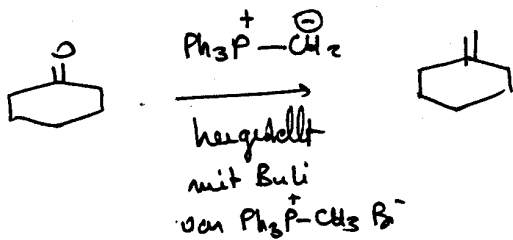 O
Ph₃P⁺—CH₂⊖
hergestellt
mit BuLi
von Ph₃P⁺-CH₃ Br⁻